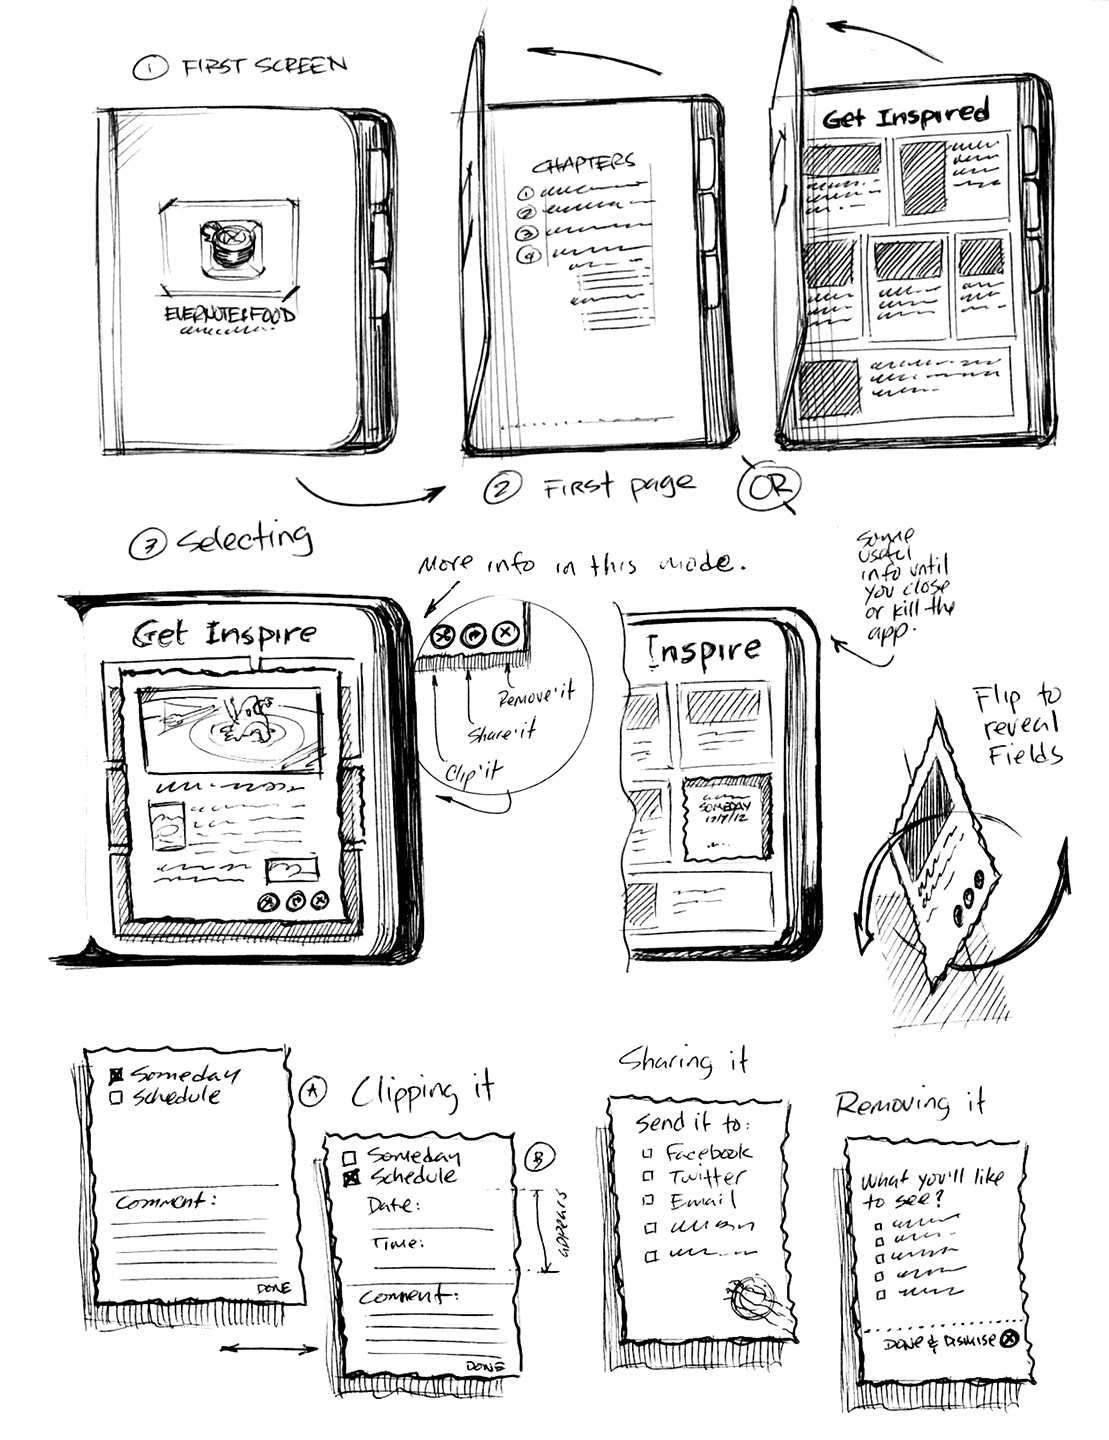 ① FIRST SCREEN
EVERNOTE & FOOD
CHAPTERS
①
②
③
④
Get Inspired
② FIRST page
OR
③ Selecting
More info in this mode.
Some
useful
info until
you close
or kill the
app.
Get Inspire
Remove it
Share it
Clip it
Inspire
SOMEDAY
12/7/12
Flip to
reveal
Fields
Someday
Schedule
Comment:
DONE
Ⓐ Clipping it
Ⓑ
Someday
Schedule
Date:
Time:
appears
Comment:
DONE
Sharing it
Send it to:
Facebook
Twitter
Email
Removing it
What you'll like
to see?
DONE & Dismise